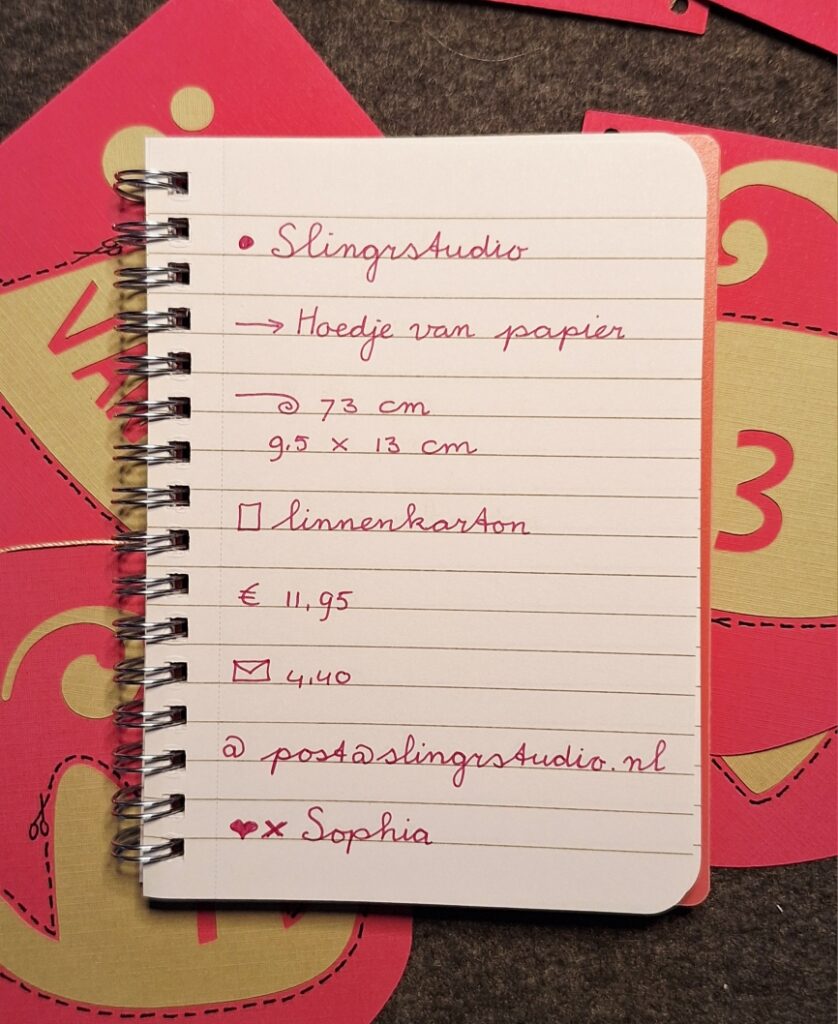 • Slingrstudio
→ Hoedje van papier
73 cm
9.5 x 13 cm
linnenkarton
€ 11,95
4,40
@ post@slingrstudio.nl
♥x Sophia
VA
3